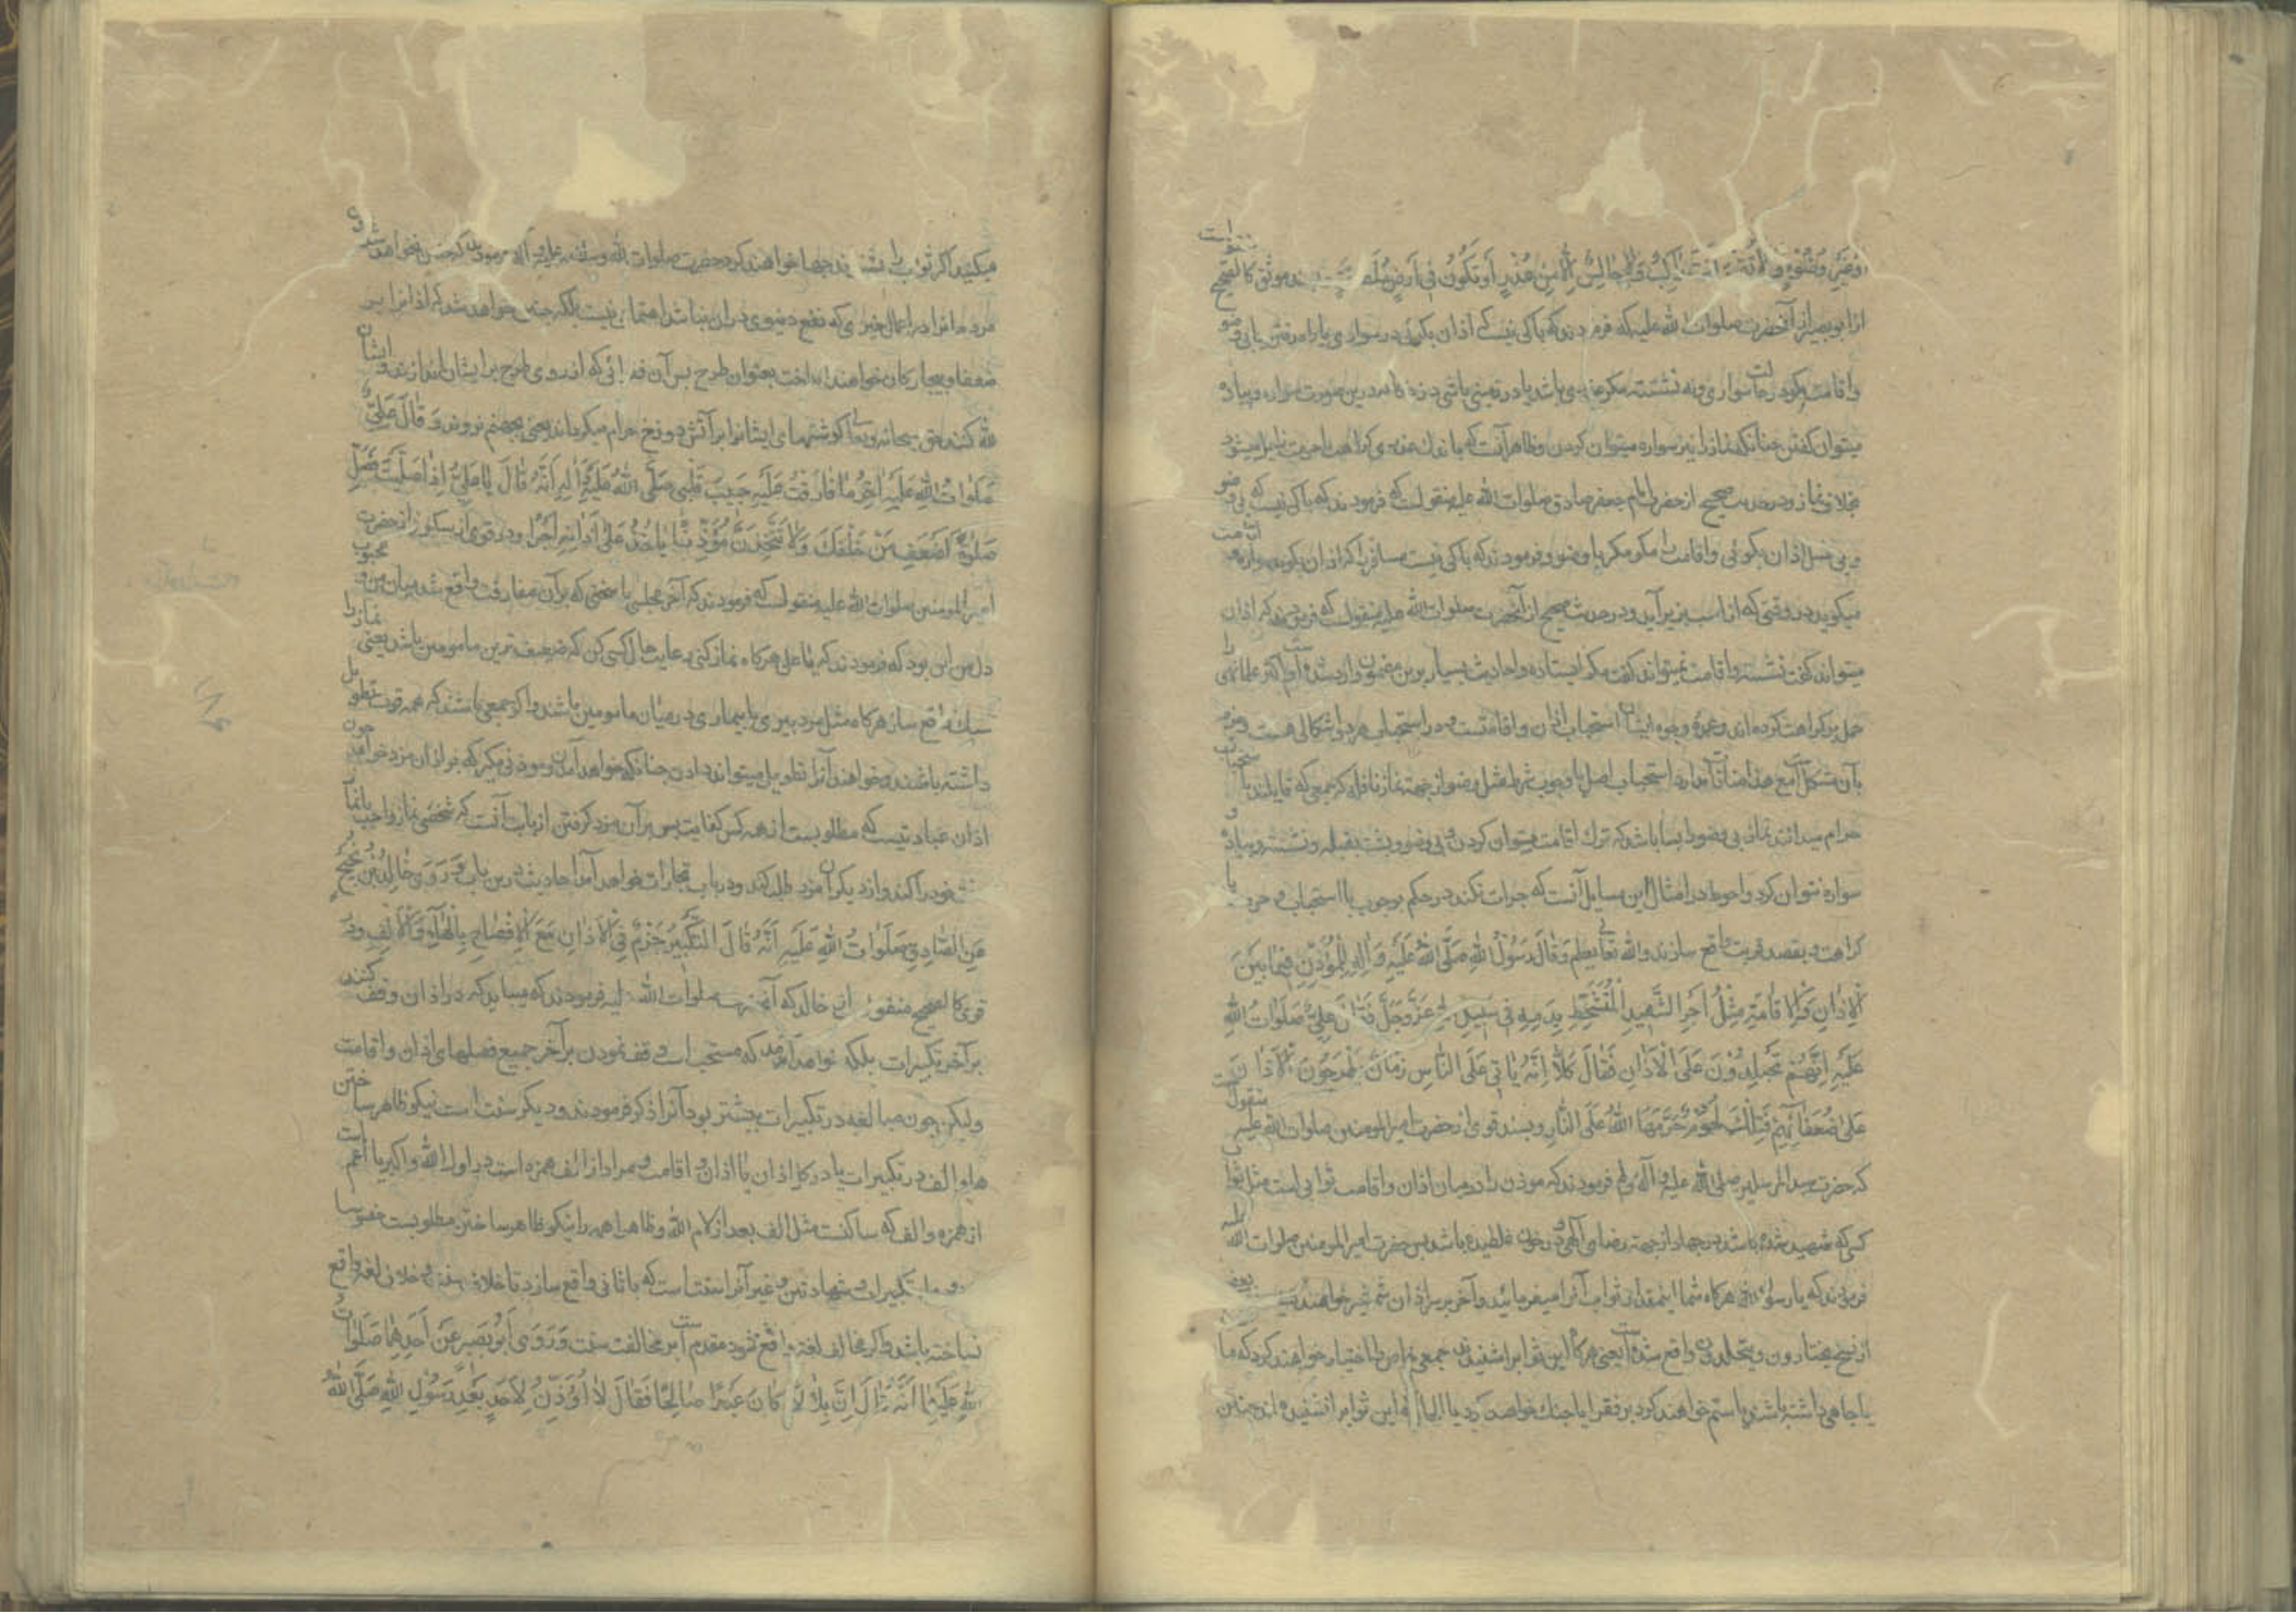 وضوء ولا تقم وانت راكب ولا جالس الا من عذر او تكون في ارض بسند موثق كالصحيح منقولست
از ابو بصیر از آنحضرت صلوات الله علیه که فرمودند که باکی نیست که اذان بکوئی در سواری یا راه رفتن یا بی وضو
واقامت مکو در حالت سواری ونه نشسته مکر باشد یا در زمینی باشی درین صورت سواره وپیاده
میتوان کفتن چنانکه نماز را نیز سواره میتوان کردن وظاهر آنست که باندك عذری
بخلاف نماز ودر حدیث صحیح از حضرت امام جعفر صادق صلوات الله علیه منقولست که فرمودند که باکی نیست که بی وضو
و بی غسل اذان بکوئی واقامت را مکو مکر با وضو وفرمودند که باکی نیست مسافر را که اذان بکوید سواره واقامت
میکوید در وقتی که از اسب بزیر آید ودر حدیث صحیح از آنحضرت صلوات الله علیه منقولست که فرمودند که اذان را
میتواند کفت نشسته واقامت نمیتواند کفت مکر ایستاده واحادیث بسیار برین مضمون وارد شده است واکثر علما
حمل بر کراهت کرده اند وعمده وجوه ایشان استحباب اذان واقامتست ودر استحباب هر دو اشکالی هست وجزم
بآن مشکل است مع هذا منافات ندارد استحباب اصل با وجوب شرط مثل وضو از جهة نماز نافله که جمعی که قایلند باستحباب
حرام میدانند نماز بی وضو را بسا باشد که ترك اقامت میتوان کردن وبی وضو وپشت بقبله ونشسته وپیاده و
سواره نتوان کرد واحوط در امثال این مسایل آنست که جرات نکند در حکم بوجوب یا استحباب وحرمت یا
کراهت وبقصد قربت واقع سازند والله تعالی یعلم وَقَالَ رَسُولُ اللهِ صَلَّى اللهُ عَلَيْهِ وَآلِهِ لِلْمُؤَذِّنِ فِيمَا بَيْنَ
الْاَذَانِ وَالْاِقَامَةِ مِثْلُ اَجْرِ الشَّهِيدِ الْمُتَشَحِّطِ بِدَمِهِ فِي سَبِيلِ اللهِ عَزَّ وَجَلَّ فَقَالَ عَلِيٌّ صَلَوَاتُ اللهِ
عَلَيْهِ اِنَّهُمْ يَجْتَلِدُونَ عَلَى الْاَذَانِ فَقَالَ كَلَّا اِنَّهُ يَاْتِي عَلَى النَّاسِ زَمَانٌ يَطْرَحُونَ الْاَذَانَ
عَلَى ضُعَفَائِهِمْ فَتِلْكَ لُحُومٌ حَرَّمَهَا اللهُ عَلَى النَّارِ وبسند قوی از حضرت امیر المومنین صلوات الله علیه منقولست
که حضرت سید المرسلین صلی الله علیه وآله وسلم فرمودند که موذن را در میان اذان واقامت ثوابی است مثل ثواب
کسی که شهید شده باشد در جهاد از جهة رضای الهی ودر خون غلطیده باشد پس حضرت امیر المومنین صلوات الله علیه
فرمودند که یا رسول الله هرکاه شما اینمقدار ثواب آنرا میفرمائید وآخر بر سر اذان شمشیر خواهند ودر بعضی
از نسخ یختارون ویتجلدون واقع شده است یعنی هرکاه این ثواب را شنیدند جمعی اختیار خواهند کرد که ما
یا جاهی داشته باشند یا ستم خواهند کرد بر فقرا یا جنك خواهند کرد یا این ثواب را نشنیده اند چنین
میکنند اکر ثواب را بشنوند چها خواهند کرد حضرت صلوات الله وسلامه علیه وآله فرمودند که چنین نخواهد شد و
مردم را در اعمال خیری که نفع دنیوی در ان نباشد اهتمامی نیست بلکه چنین خواهد شد که اذانرا بر
ضعفا وبیچارکان خواهند انداخت بعنوان طرح پس آن که از روی طرح بر ایشان اندازند وایشان
لله کنند حق سبحانه وتعالی کوشتهای ایشانرا بر آتش دوزخ حرام میکرداند یعنی بجهنم نروند وَقَالَ عَلِيٌّ
صَلَوَاتُ اللهِ عَلَيْهِ آخِرُ مَا فَارَقْتُ عَلَيْهِ حَبِيبَ قَلْبِي صَلَّى اللهُ عَلَيْهِ وَآلِهِ اَنَّهُ قَالَ يَا عَلِيُّ اِذَا صَلَّيْتَ فَصَلِّ
صَلٰوةَ اَضْعَفِ مَنْ خَلْفَكَ وَلَا تَتَّخِذَنَّ مُؤَذِّنًا يَاْخُذُ عَلَى اَذَانِهِ اَجْرًا ودر قوی از سکونی از حضرت
امیر المومنین صلوات الله علیه منقولست که فرمودند که آخر مجلسی یا سخنی که بر آن مفارقت واقع شد میان من ومحبوب
دل من این بود که فرمودند که یا علی هرکاه نماز کنی رعایت حال کسی کن که ضعیف ترین مامومین باشد یعنی نماز را
سبك واقع ساز هرکاه مثل مرد پیری یا بیماری در میان مامومین باشد واکر جمعی باشند که همه قوت تطویل
داشته باشند وخواهند آنرا تطویل میتواند دادن چنانکه خواهد آمدن وموذنی مکیر که بر اذان مزد خواهد چون
اذان عبادتیست که مطلوبست از همه کس کفایت پس بر آن مزد کرفتن از بابت آنست که شخصی نماز واجب یا نماز
خود را کند واز دیکران مزد طلب کند ودر باب تجارات خواهد آمد احادیث درین باب وَرَوَى خَالِدُ بْنُ نَجِيحٍ
عَنِ الصَّادِقِ صَلَوَاتُ اللهِ عَلَيْهِ اَنَّهُ قَالَ التَّكْبِيرُ جَزْمٌ فِي الْاَذَانِ مَعَ الْاِفْصَاحِ بِالْهَاءِ وَالْاَلِفِ ودر
قوی کالصحیح منقولست از خالد که آنحضرت صلوات الله علیه فرمودند که میباید که در اذان وقف کنند
بر آخر تکبیرات بلکه خواهد آمد که مستحب است وقف نمودن بر آخر جمیع فصلهای اذان واقامت
ولیکن چون مبالغه در تکبیرات بیشتر بود آنرا ذکر فرمودند ودیکر سنت است نیکو ظاهر ساختن
ها والف در تکبیرات یا در کل اذان یا اذان واقامت ومراد از الف همزه است در اول الله واکبر یا اعم است
از همزه والف که ساکنست مثل الف بعد از لام الله وظاهرا همه را نیکو ظاهر ساختن مطلوبست خصوصا
تکبیرات وشهادتین وغیر آنرا سنت است که باتانی واقع سازد تا خلاف سنه وخلاف لغه واقع
نساخته باشد واکر مخالف لغه واقع شود مقدم است بر مخالفت سنت وَرَوَى اَبُو بَصِيرٍ عَنْ اَحَدِهِمَا صَلَوَاتُ
اللهِ عَلَيْهِمَا اَنَّهُ قَالَ اِنَّ بِلَالًا كَانَ عَبْدًا صَالِحًا فَقَالَ لَا اُؤَذِّنُ لِاَحَدٍ بَعْدَ رَسُولِ اللهِ صَلَّى اللهُ